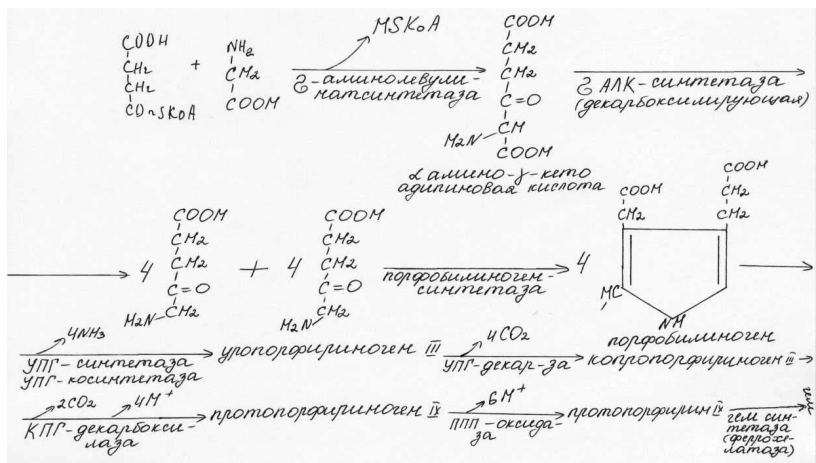 COOH
CH2
CH2
CO~SKoA
+
NH2
CH2
COOH
HSKoA
δ-аминолевули-
натсинтетаза
COOH
CH2
CH2
C=O
H2N CH
COOH
α амино-γ-кето
адипиновая кислота
δ АЛК-синтетаза
(декарбоксилирующая)
4
COOH
CH2
CH2
C=O
H2N CH2
+
4
COOH
CH2
CH2
C=O
H2N CH2
порфобилиноген-
синтетаза
4
COOH
CH2
COOH
CH2
CH2
HC
NH
порфобилиноген
4NH3
УПГ-синтетаза
УПГ-косинтетаза
уропорфириноген III
4CO2
УПГ-декар-за
копропорфириноген III
2CO2
4H+
КПГ-декарбокси-
лаза
протопорфириноген IX
6H+
ППП-оксида-
за
протопорфирин IX
гем син-
тетаза
(феррохе-
латаза)
гем